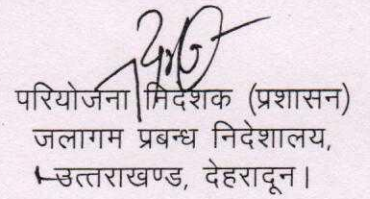 परियोजना निदेशक (प्रशासन)
जलागम प्रबन्ध निदेशालय,
उत्तराखण्ड, देहरादून।